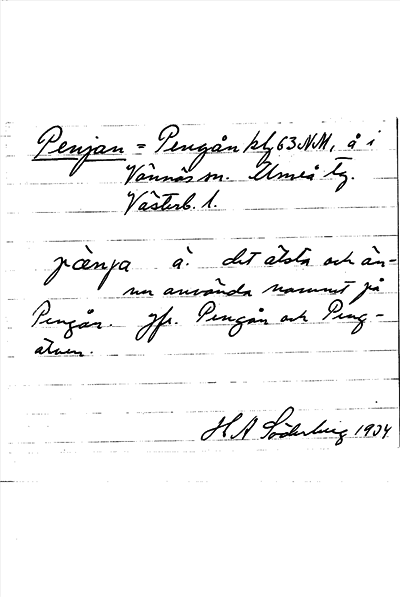 Penjan = Pengån kbl 63 NM, å i
Vännäs sn. Umeå tg.
Västerb. l.
pænja å. det älsta och än-
nu använda namnet på
Pengån. Jfr. Pengån och Peng-
älven.
H A Söderberg 1904